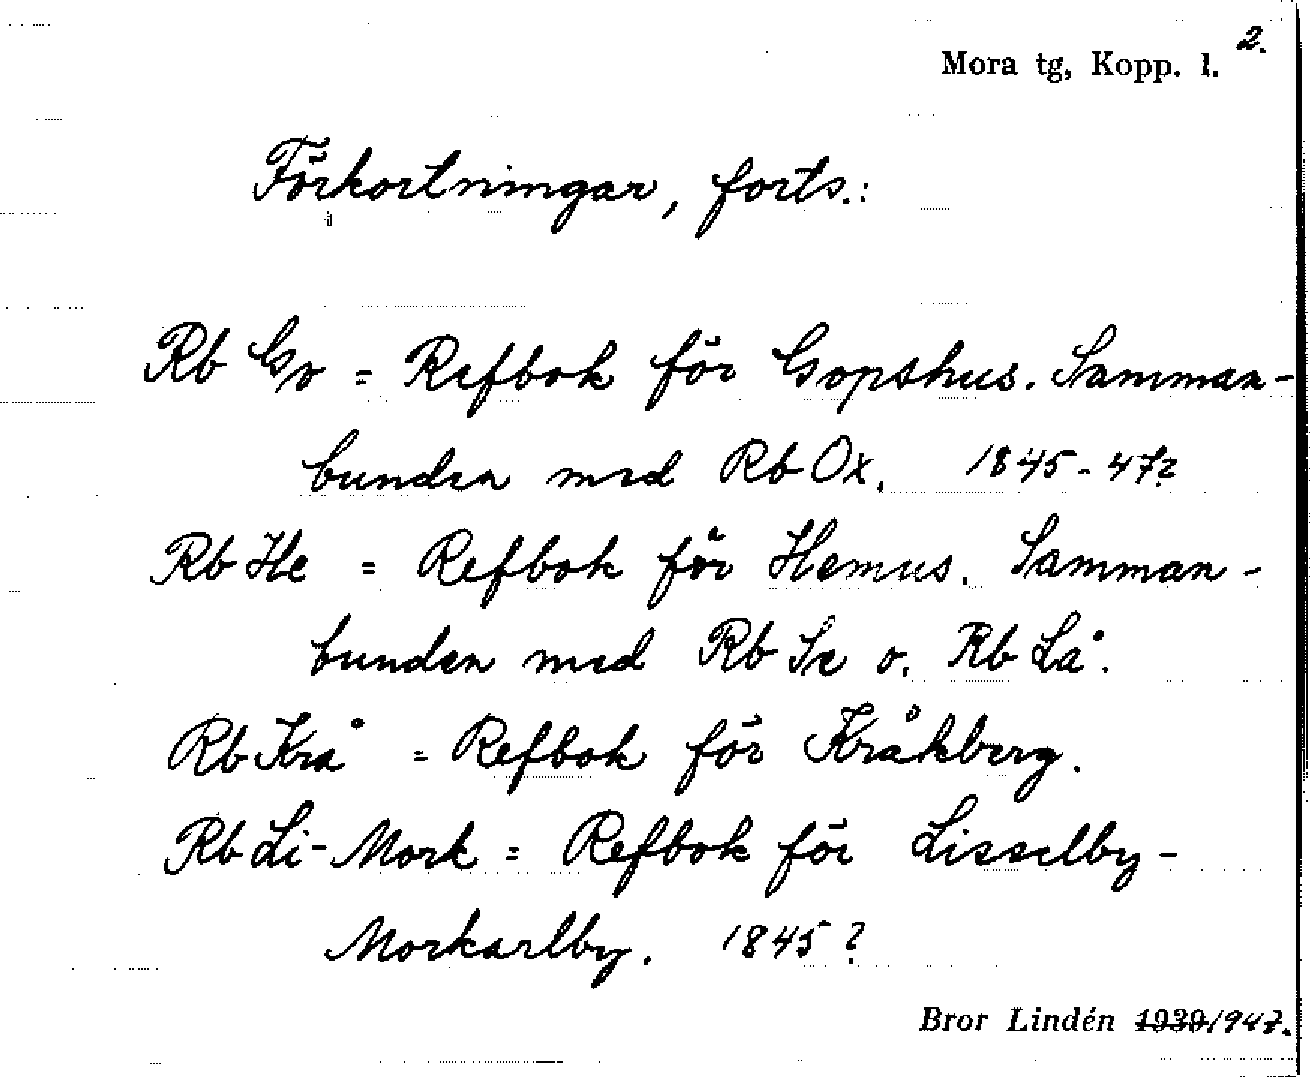 2.
Mora tg, Kopp. l.
Förkortningar, forts.:
Rb Go = Refbok för Gopshus. Samman-
bunden med Rb Ox. 1845-47?
Rb He = Refbok för Hemus. Samman-
bunden med Rb Se o. Rb Lå.
Rb Krå = Refbok för Kråkberg.
Rb Li-Mork = Refbok för Lisselby-
Morkarlby. 1845?
Bror Lindén 1939/947.